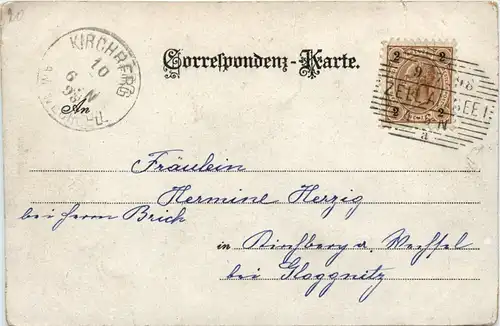 20
KIRCHBERG
10
6
98
Correspondenz-Karte.
2 2
9 98
ZELL A. SEE 1
2 2
An
Fräulein
Hermine Herzig
bei Herrn Brich
in Kirchberg a. Wechsel
bei Gloggnitz